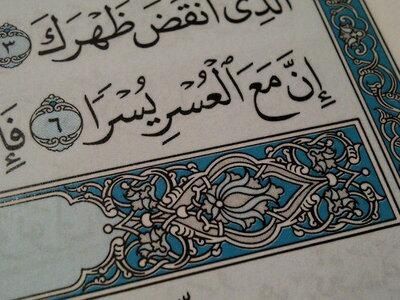 ٱلَّذِىٓ أَنقَضَ ظَهْرَكَ ٣
إِنَّ مَعَ ٱلْعُسْرِ يُسْرًا ٦